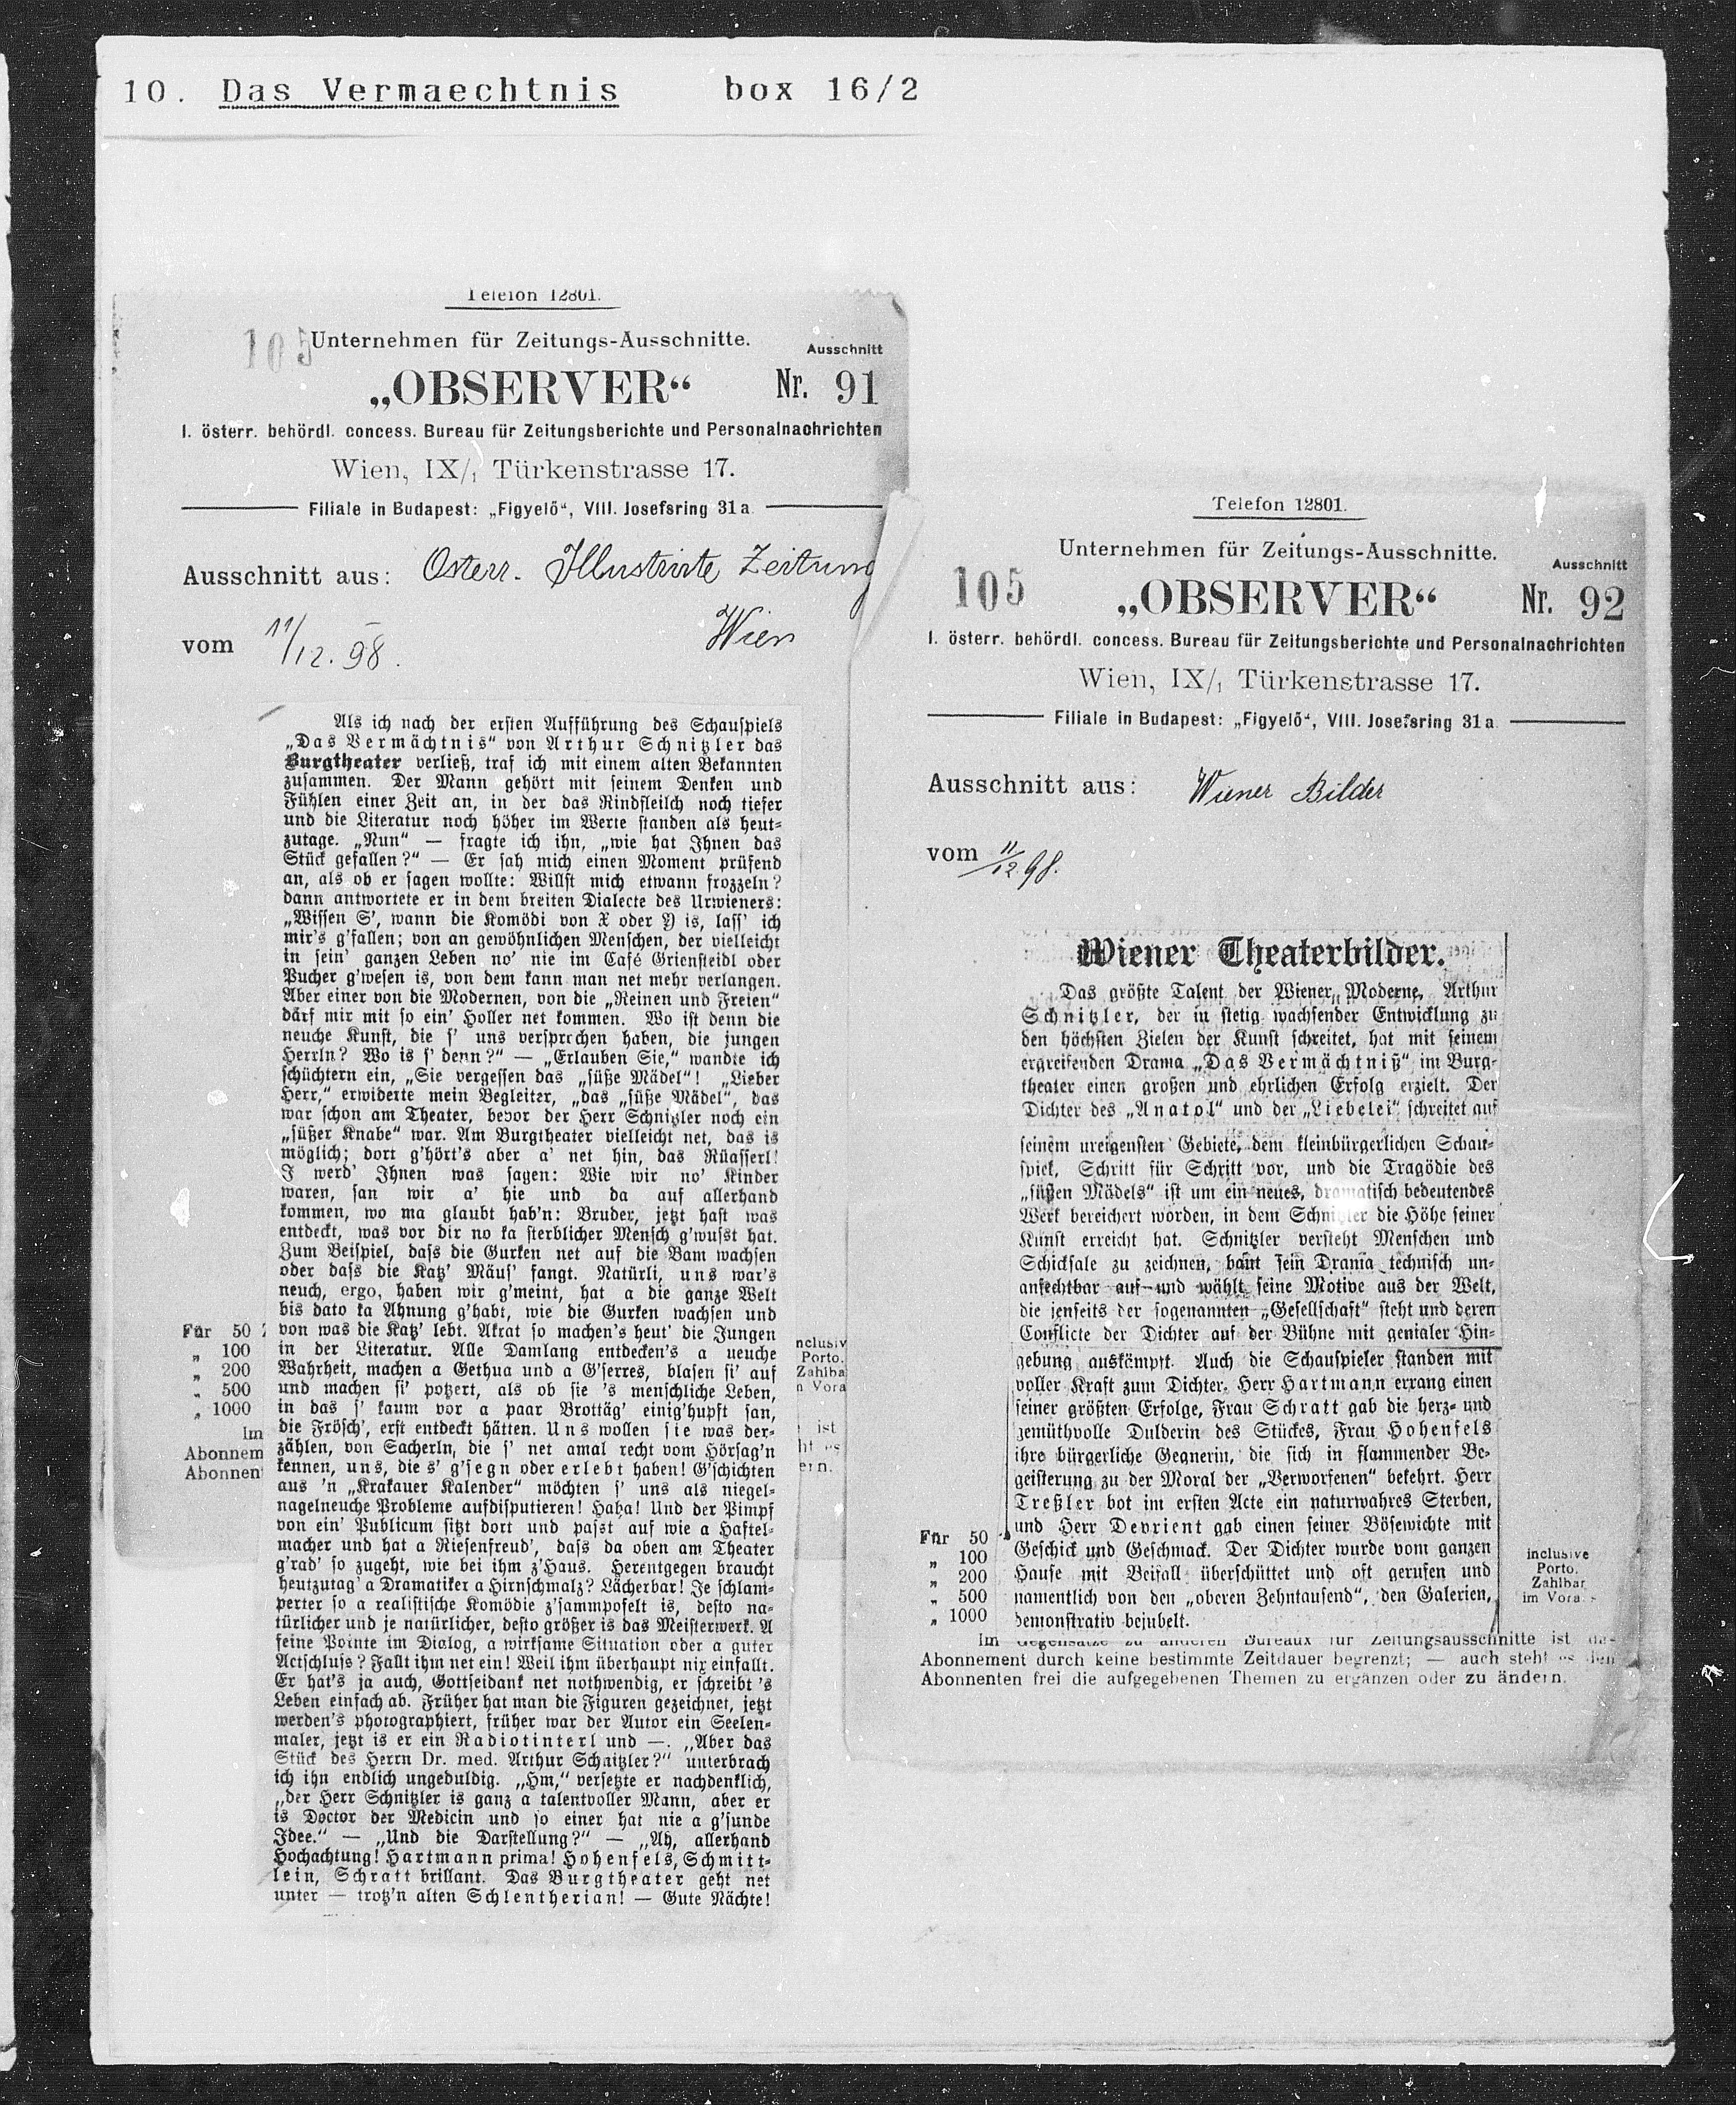 10. Das Vermaechtnis box 16/2
Telefon 12801.
105
Unternehmen für Zeitungs-Ausschnitte.
Ausschnitt
„OBSERVER“ Nr. 91
I. österr. behördl. concess. Bureau für Zeitungsberichte und Personalnachrichten
Wien, IX/1 Türkenstrasse 17.
Filiale in Budapest: „Figyelő“, VIII. Josefsring 31a
Ausschnitt aus: Osterr. Illustrirte Zeitung
Wien
vom 11/12. 98.
Als ich nach der ersten Aufführung des Schauspiels
„Das Vermächtnis“ von Arthur Schnitzler das
Burgtheater verließ, traf ich mit einem alten Bekannten
zusammen. Der Mann gehört mit seinem Denken und
Fühlen einer Zeit an, in der das Rindfleisch noch tiefer
und die Literatur noch höher im Werte standen als heut-
zutage. „Nun“ — fragte ich ihn, „wie hat Ihnen das
Stück gefallen?“ — Er sah mich einen Moment prüfend
an, als ob er sagen wollte: Willst mich etwann frozzeln?
dann antwortete er in dem breiten Dialecte des Urwieners:
„Wissen S', wann die Komödi von X oder Y is, lass' ich
mir's g'fallen; von an gewöhnlichen Menschen, der vielleicht
in sein' ganzen Leben no' nie im Café Griensteidl oder
Pucher g'wesen is, von dem kann man net mehr verlangen.
Aber einer von die Modernen, von die „Reinen und Freien“
därf mir mit so ein' Holler net kommen. Wo ist denn die
neuche Kunst, die s' uns versprochen haben, die jungen
Herrln? Wo is s' denn?“ — „Erlauben Sie,“ wandte ich
schüchtern ein, „Sie vergessen das „süße Mädel“! „Lieber
Herr,“ erwiderte mein Begleiter, „das „süße Mädel“, das
war schon am Theater, bevor der Herr Schnitzler noch ein
„süßer Knabe“ war. Am Burgtheater vielleicht net, das is
möglich; dort g'hört's aber a' net hin, das Rüasserl!
I werd' Ihnen was sagen: Wie wir no' Kinder
waren, san wir a' hie und da auf allerhand
kommen, wo ma glaubt hab'n: Bruder, jetzt hast was
entdeckt, was vor dir no ka sterblicher Mensch g'wusst hat.
Zum Beispiel, dass die Gurken net auf die Bam wachsen
oder dass die Katz' Mäus' fangt. Natürli, uns war's
neuch, ergo, haben wir g'meint, hat a die ganze Welt
bis dato ka Ahnung g'habt, wie die Gurken wachsen und
von was die Katz' lebt. Akrat so machen's heut' die Jungen
in der Literatur. Alle Damlang entdecken's a neuche
Wahrheit, machen a Gethua und a G'serres, blasen si' auf
und machen si' potzert, als ob sie 's menschliche Leben,
in das s' kaum vor a paar Brottäg' einig'hupft san,
die Frösch', erst entdeckt hätten. Uns wollen sie was der-
zählen, von Sacherln, die s' net amal recht vom Hörsag'n
kennen, uns, die s' g'segn oder erlebt haben! G'schichten
aus 'n „Krakauer Kalender“ möchten s' uns als niegel-
nagelneuche Probleme aufdisputieren! Haha! Und der Pimpf
von ein' Publicum sitzt dort und passt auf wie a Haftel-
macher und hat a Riesenfreud', dass da oben am Theater
g'rad' so zugeht, wie bei ihm z'Haus. Herentgegen braucht
heutzutag' a Dramatiker a Hirnschmalz? Lächerbar! Je schlam-
perter so a realistische Komödie z'sammposelt is, desto na-
türlicher und je natürlicher, desto größer is das Meisterwerk. A
feine Pointe im Dialog, a wirksame Situation oder a guter
Actschluss? Fallt ihm net ein! Weil ihm überhaupt nix einfallt.
Er hat's ja auch, Gottseidank net nothwendig, er schreibt 's
Leben einfach ab. Früher hat man die Figuren gezeichnet, jetzt
werden's photographiert, früher war der Autor ein Seelen-
maler, jetzt is er ein Radiotinterl und —. „Aber das
Stück des Herrn Dr. med. Arthur Schnitzler?“ unterbrach
ich ihn endlich ungeduldig. „Hm,“ versetzte er nachdenklich,
„der Herr Schnitzler is ganz a talentvoller Mann, aber er
is Doctor der Medicin und so einer hat nie a g'sunde
Idee.“ — „Und die Darstellung?“ — „Ah, allerhand
Hochachtung! Hartmann prima! Hohenfels, Schmitt-
lein, Schratt brillant. Das Burgtheater geht net
unter — trotz'n alten Schlentherian! — Gute Nächte!
Für 50
„ 100
„ 200
„ 500
„ 1000
Im
Abonnem
Abonnent
nclusiv
Porto.
Zahlba
n Vora
ist
ht es
ern.
Telefon 12801.
Unternehmen für Zeitungs-Ausschnitte.
Ausschnitt
105
„OBSERVER“ Nr. 92
I. österr. behördl. concess. Bureau für Zeitungsberichte und Personalnachrichten
Wien, IX/1 Türkenstrasse 17.
Filiale in Budapest: „Figyelő“, VIII. Josefsring 31a
Ausschnitt aus: Wiener Bilder
vom 11/12 98.
Wiener Theaterbilder.
Das größte Talent der Wiener Moderne, Arthur
Schnitzler, der in stetig wachsender Entwicklung zu
den höchsten Zielen der Kunst schreitet, hat mit seinem
ergreifenden Drama „Das Vermächtniß“ im Burg-
theater einen großen und ehrlichen Erfolg erzielt. Der
Dichter des „Anatol“ und der „Liebelei“ schreitet auf
seinem ureigensten Gebiete, dem kleinbürgerlichen Schau-
spiel, Schritt für Schritt vor, und die Tragödie des
„süßen Mädels“ ist um ein neues, dramatisch bedeutendes
Werk bereichert worden, in dem Schnitzler die Höhe seiner
Kunst erreicht hat. Schnitzler versteht Menschen und
Schicksale zu zeichnen, baut sein Drama technisch un-
anfechtbar auf und wählt seine Motive aus der Welt,
die jenseits der sogenannten „Gesellschaft“ steht und deren
Conflicte der Dichter auf der Bühne mit genialer Hin-
gebung auskämpft. Auch die Schauspieler standen mit
voller Kraft zum Dichter. Herr Hartmann errang einen
seiner größten Erfolge, Frau Schratt gab die herz- und
gemüthvolle Dulderin des Stückes, Frau Hohenfels
ihre bürgerliche Gegnerin, die sich in flammender Be-
geisterung zu der Moral der „Verworfenen“ bekehrt. Herr
Treßler bot im ersten Acte ein naturwahres Sterben,
und Herr Devrient gab einen seiner Bösewichte mit
Geschick und Geschmack. Der Dichter wurde vom ganzen
Hause mit Beifall überschüttet und oft gerufen und
namentlich von den „oberen Zehntausend“, den Galerien,
demonstrativ bejubelt.
Für 50
„ 100
„ 200
„ 500
„ 1000
inclusive
Porto.
Zahlbar
im Vora
Im Gegensatze zu anderen Bureaux für Zeitungsausschnitte ist das
Abonnement durch keine bestimmte Zeitdauer begrenzt; — auch steht es den
Abonnenten frei die aufgegebenen Themen zu ergänzen oder zu ändern.